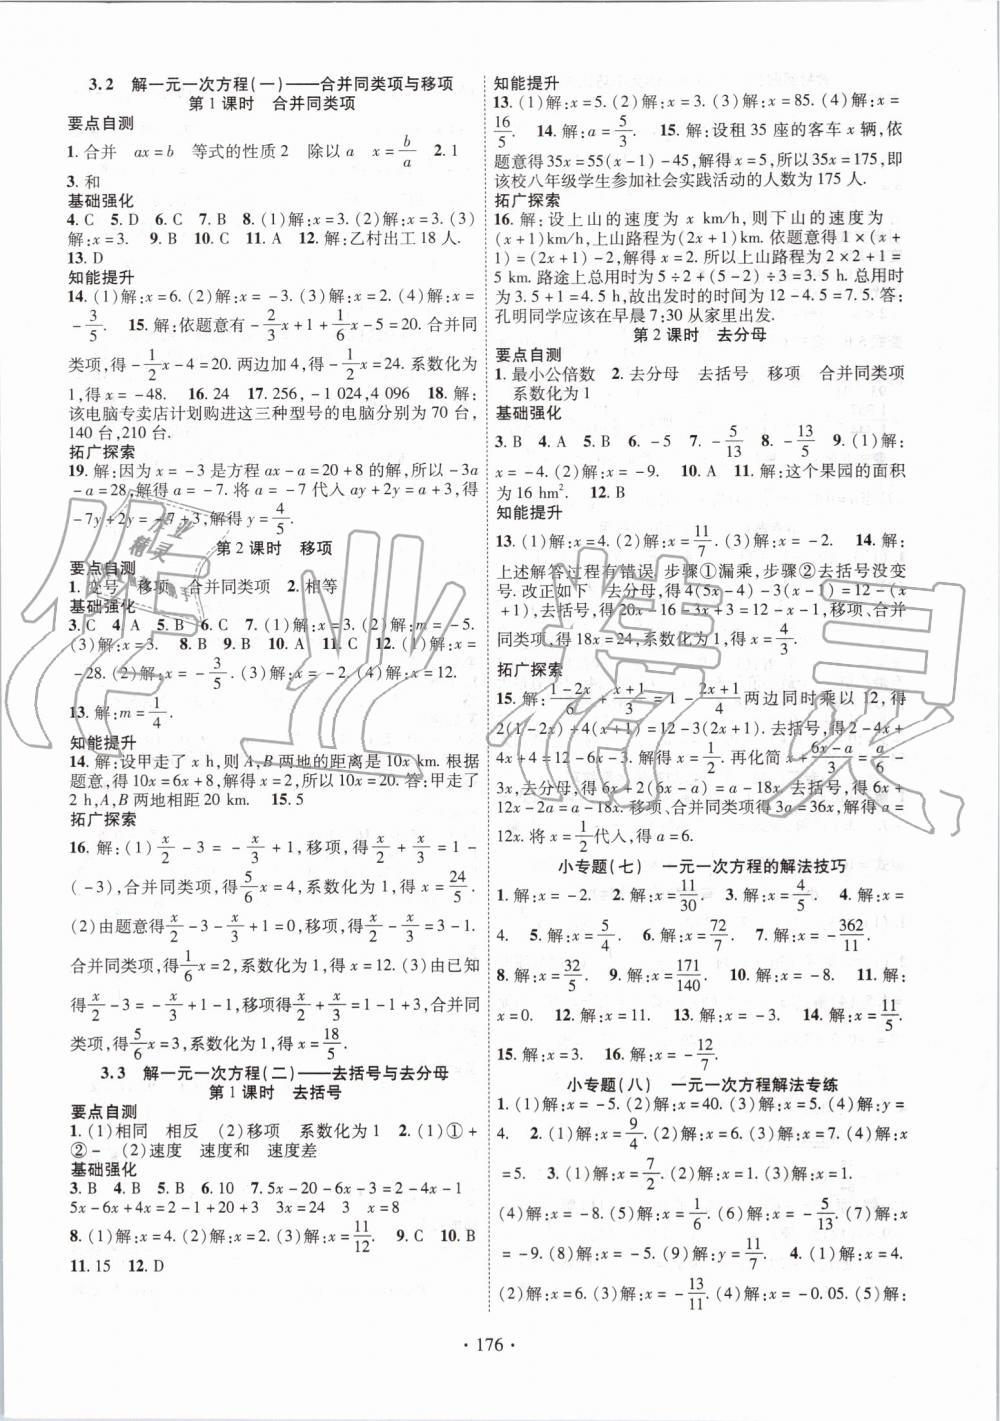 3.2 解一元一次方程(一)——合并同类项与移项
第1课时 合并同类项
要点自测
1.合并 ax=b 等式的性质2 除以a x=b/a 2.1
3.和
基础强化
4.C 5.D 6.C 7.B 8.(1)解:x=3.(2)解:x=3.(3)
解:x=3. 9.B 10.C 11.A 12.解:乙村出工18人.
13.D
知能提升
14.(1)解:x=6.(2)解:x=-3.(3)解:x=2.(4)解:x=
-3/5. 15.解:依题意有-2/3x+1+1/6x-5=20.合并同
类项,得-1/2x-4=20.两边加4,得-1/2x=24.系数化为
1,得x=-48. 16.24 17.256,-1 024,4 096 18.解:
该电脑专卖店计划购进这三种型号的电脑分别为70台,
140台,210台.
拓广探索
19.解:因为x=-3是方程ax-a=20+8的解,所以-3a
-a=28,解得a=-7.将a=-7代入ay+2y=a+3,得
-7y+2y=-7+3,解得y=4/5.
第2课时 移项
要点自测
1.变号 移项 合并同类项 2.相等
基础强化
3.C 4.A 5.B 6.C 7.(1)解:x=3.(2)解:m=-5.
(3)解:x=3. 8.B 9.B 10.A 11.C 12.(1)解:x=
-28.(2)解:x=-3/5.(3)解:x=-2.(4)解:x=12.
13.解:m=1/4.
知能提升
14.解:设甲走了x h,则A,B两地的距离是10x km.根据
题意,得10x=6x+8,解得x=2,所以10x=20.答:甲走了
2 h,A,B两地相距20 km. 15.5
拓广探索
16.解:(1)x/2-3=-x/3+1,移项,得x/2+x/3=1-
(-3),合并同类项,得5/6x=4,系数化为1,得x=24/5.
(2)由题意得x/2-3-x/3+1=0.移项,得x/2-x/3=3-1.
合并同类项,得1/6x=2,系数化为1,得x=12.(3)由已知
得x/2-3=-x/3+1-1,移项得x/2+x/3=1-1+3,合并同
类项,得5/6x=3,系数化为1,得x=18/5.
3.3 解一元一次方程(二)——去括号与去分母
第1课时 去括号
要点自测
1.(1)相同 相反 (2)移项 系数化为1 2.(1)①+
②- (2)速度 速度和 速度差
基础强化
3.B 4.B 5.B 6.10 7.5x-20-6x-3=2-4x-1
5x-6x+4x=2-1+20+3 3x=24 3 x=8
8.(1)解:x=4.(2)解:x=2.(3)解:x=11/12. 9.C 10.B
11.15 12.D
知能提升
13.(1)解:x=5.(2)解:x=4.(3)解:x=85.(4)解:x=
16/5. 14.解:a=5/3. 15.解:设租35座的客车x辆,依
题意得35x=55(x-1)-45,解得x=5,所以35x=175,即
该校八年级学生参加社会实践活动的人数为175人.
拓广探索
16.解:设上山的速度为x km/h,则下山的速度为
(x+1)km/h,上山路程为(2x+1)km.依题意得1×(x+
1)=(2x+1)-2.解得x=2.所以上山路程为2×2+1=
5 km.路途上总用时为5÷2+(5-2)÷3=3.5 h.总用时
为3.5+1=4.5 h,故出发时的时间为12-4.5=7.5.答:
孔明同学应该在早晨7:30从家里出发.
第2课时 去分母
要点自测
1.最小公倍数 2.去分母 去括号 移项 合并同类项
系数化为1
基础强化
3.B 4.A 5.B 6.-5 7.-5/13 8.-13/5 9.(1)解:
x=-4.(2)解:x=-9. 10.A 11.解:这个果园的面积
为16 hm². 12.B
知能提升
13.(1)解:x=4.(2)解:x=11/7.(3)解:x=-2. 14.解:
上述解答过程有错误,步骤①漏乘,步骤②去括号没变
号.改正如下 去分母,得4(5x-4)-3(x-1)=12-(x
+1),去括号,得20x-16-3x+3=12-x-1,移项、合并
同类项,得18x=24,系数化为1,得x=4/3.
拓广探索
15.解:1-2x/6+x+1/3=1-2x+1/4两边同时乘以12,得
2(1-2x)+4(x+1)=12-3(2x+1).去括号,得2-4x+
4x+4=12-6x-3.解得x=1/2.再化简x+6x-a/3=a/6-
3x,去分母,得6x+2(6x-a)=a-18x.去括号,得6x+
12x-2a=a-18x.移项、合并同类项,得3a=36x,解得a=
12x.将x=1/2代入,得a=6.
小专题(七) 一元一次方程的解法技巧
1.解:x=-2. 2.解:x=11/30. 3.解:x=4/5. 4.解:x=
4. 5.解:x=5/4. 6.解:x=72/7. 7.解:x=-362/11.
8.解:x=32/5. 9.解:x=171/140. 10.解:x=-8. 11.解:
x=0. 12.解:x=11. 13.解:x=-3. 14.解:x=11/5.
15.解:x=3. 16.解:x=-12/7.
小专题(八) 一元一次方程解法专练
1.(1)解:x=-5.(2)解:x=40.(3)解:x=5.(4)解:y=
4. 2.(1)解:x=9/4.(2)解:x=6.(3)解:x=7.(4)解:x
=5. 3.(1)解:x=7/2.(2)解:x=3.(3)解:x=1.
(4)解:x=-8.(5)解:x=1/6.(6)解:x=-5/13.(7)解:x
=-9.(8)解:x=-5.(9)解:y=11/7. 4.(1)解:x=4.
(2)解:x=6.(3)解:x=-13/11.(4)解:x=-0.05.(5)解:
·176·
作业精灵